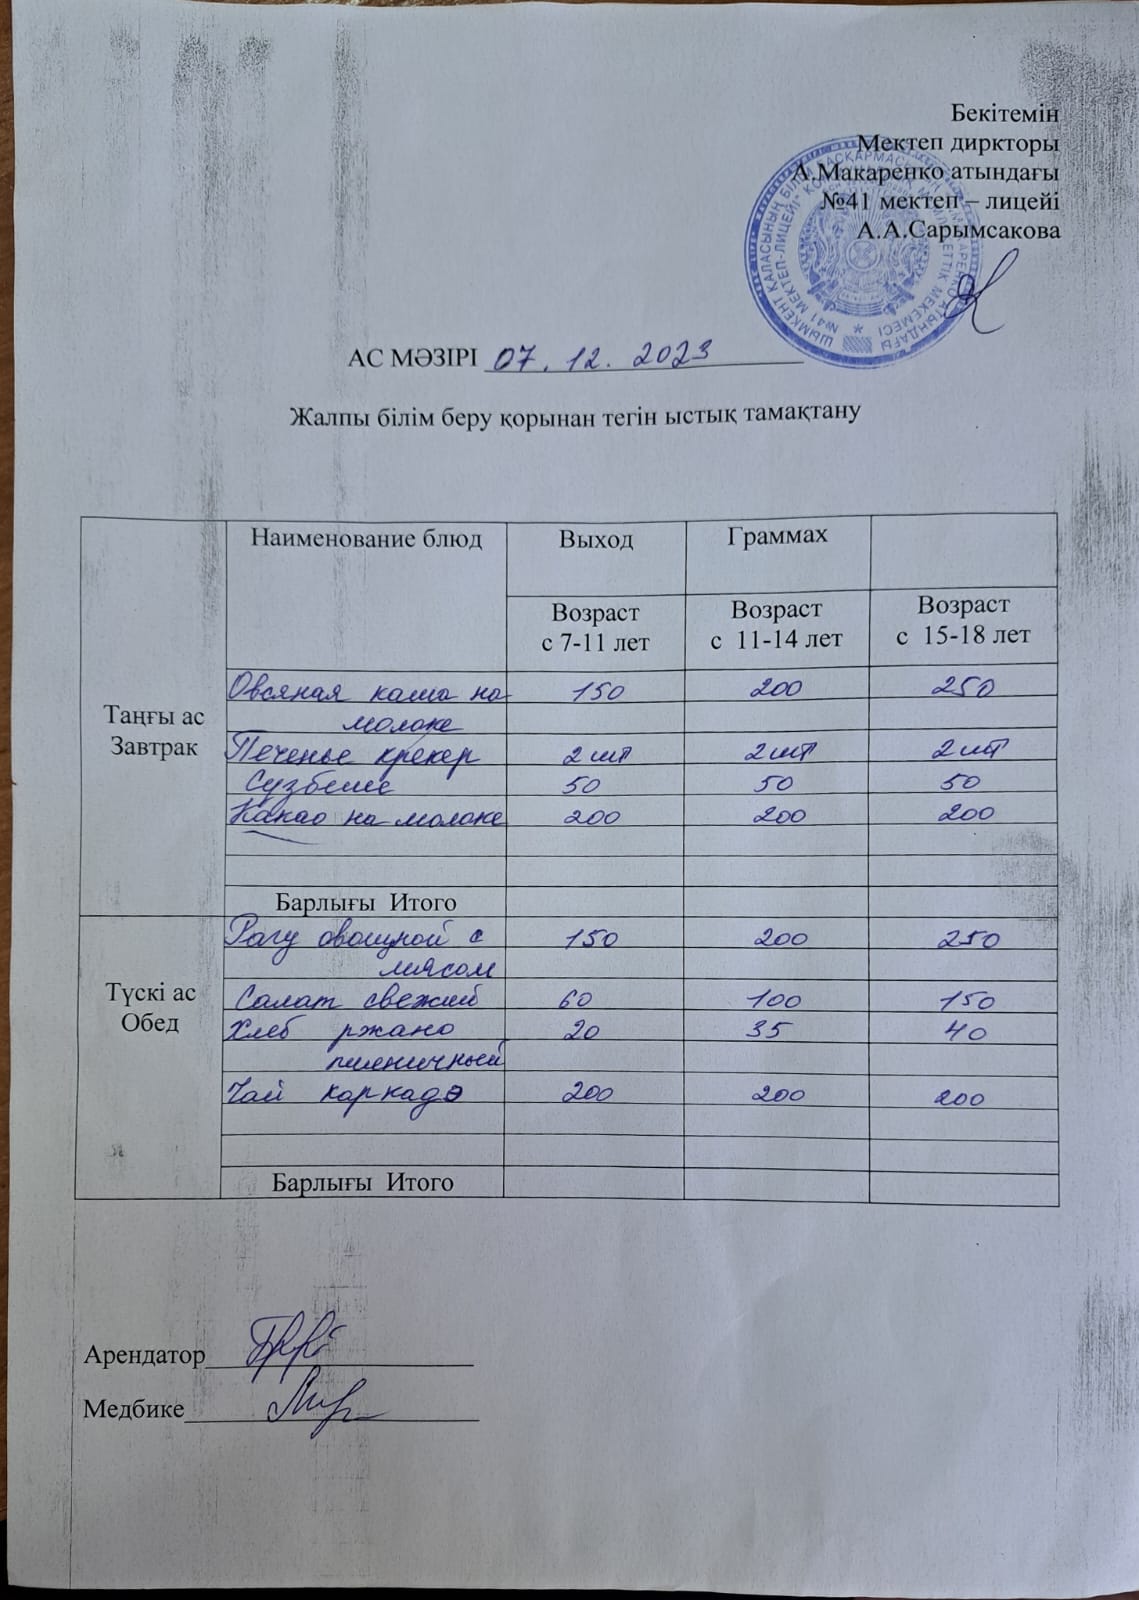 Бекітемін
Мектеп диркторы
А.Макаренко атындағы
№41 мектеп – лицейі
А.А.Сарымсакова
АС МӘЗІРІ 07.12.2023
Жалпы білім беру қорынан тегін ыстық тамақтану
Наименование блюд Выход Граммах
Возраст с 7-11 лет Возраст с 11-14 лет Возраст с 15-18 лет
Таңғы ас
Завтрак
Овсяная каша на 150 200 250
молоке
Печенье крекер 2 шт 2 шт 2 шт
Сузбеше 50 50 50
Какао на молоке 200 200 200
Барлығы Итого
Түскі ас
Обед
Рагу овощной с 150 200 250
мясом
Салат свежий 60 100 150
Хлеб ржано 20 35 40
пшеничный
Чай каркадэ 200 200 200
Барлығы Итого
Арендатор
Медбике